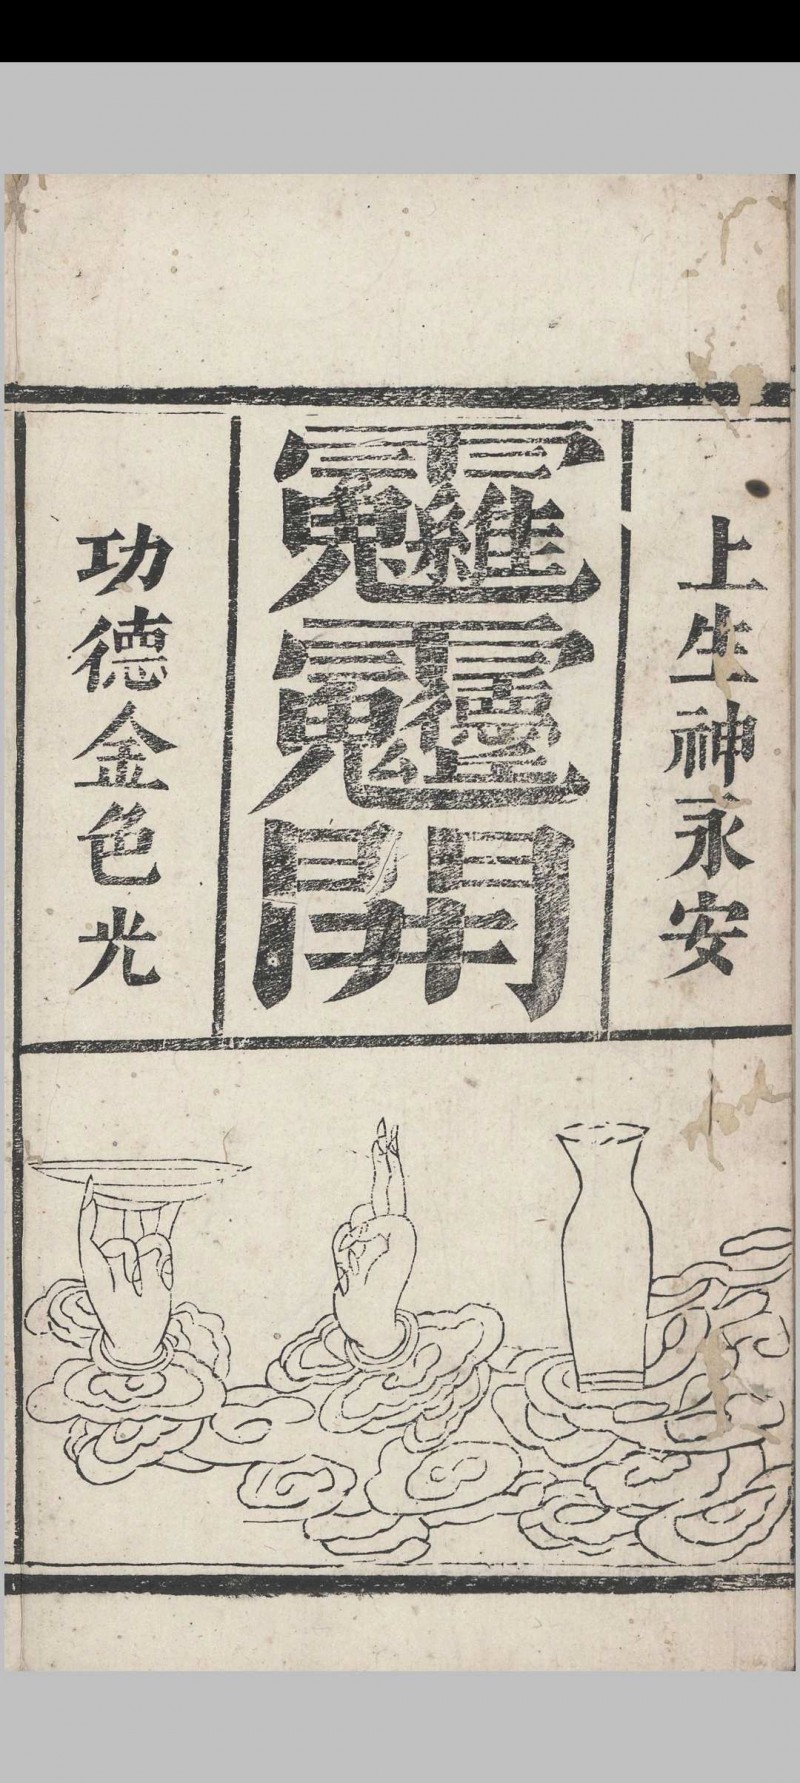 上生神永安
開
功德金色光